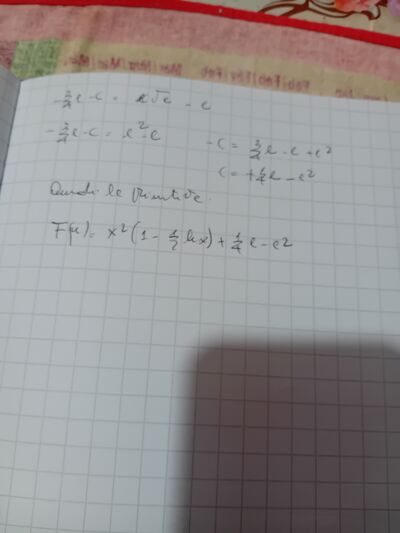 -3/4 e - c = e√e - e
-3/4 e - c = e² - e
- c = 3/4 e - e + e²
c = + 1/4 e - e²
Quindi le primitive
F(x) = x² (1 - 1/2 ln x) + 1/4 e - e²